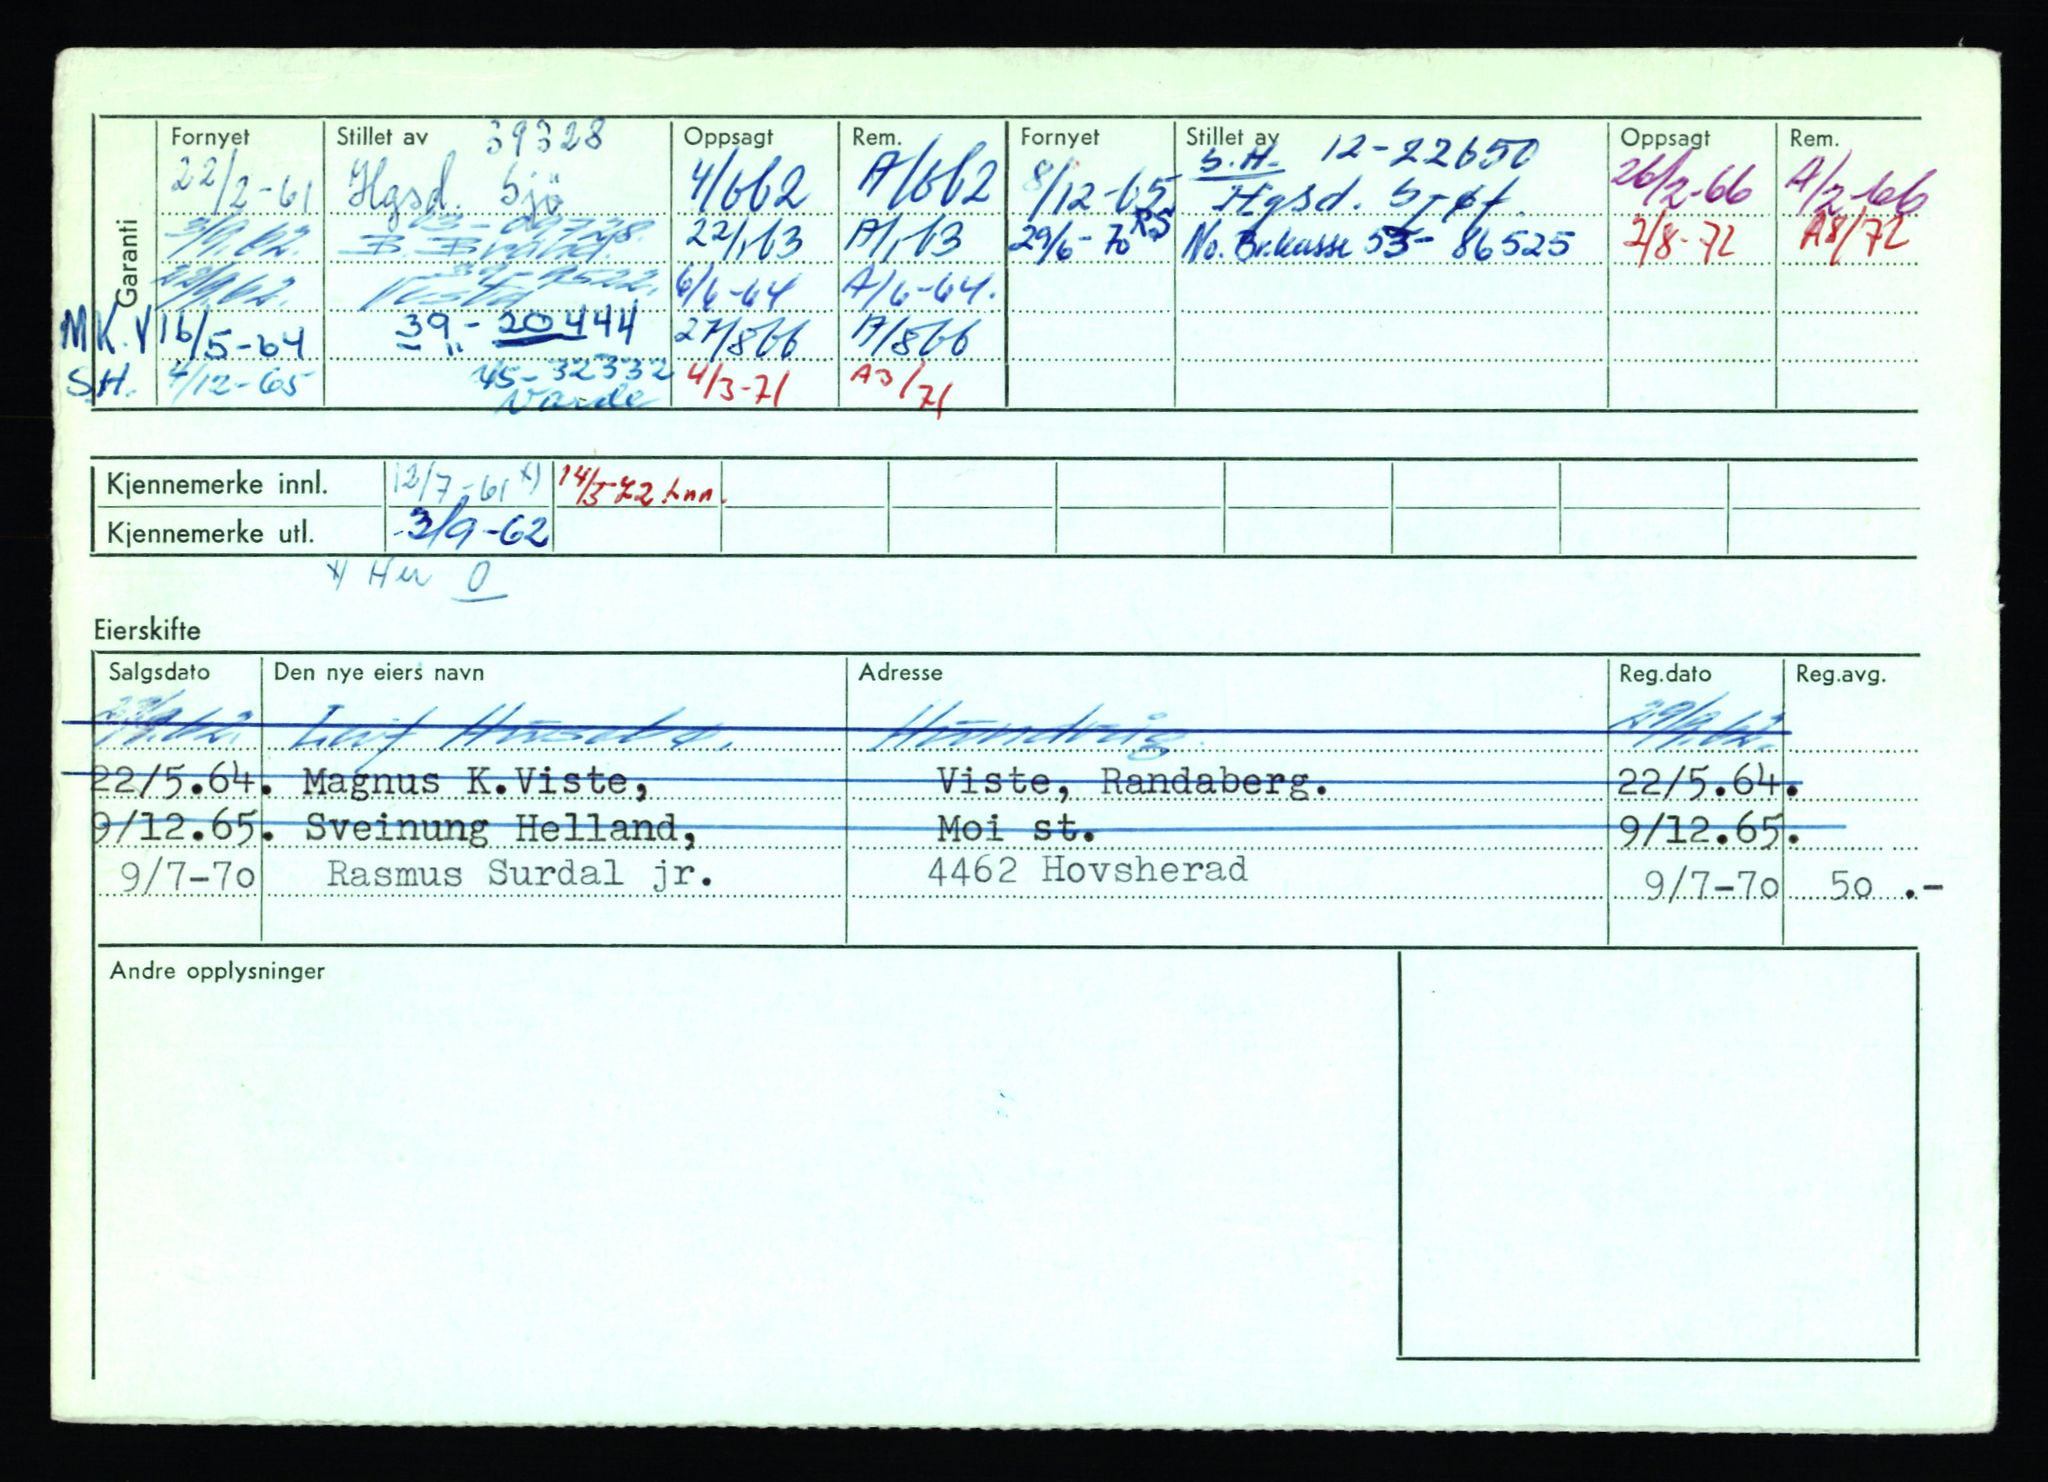 Garanti
Fornyet Stillet av 39328 Oppsagt Rem. Fornyet Stillet av S.H. 12-22650 Oppsagt Rem.
22/2-61 Hgsd. Sjö 4/662 A/662 8/12-65 Hgsd. Sjøf. 26/2-66 A/2-66
3/9.62. 22/1,63 A/1,63 29/6-70 RS No. Br.kasse 53-86525 2/8-72 A8/72
22/9.62. Vesta 6/6-64 A/6-64.
M K. V 16/5-64 39-20444 27/866 A/866
S.H. 4/12-65 45-32332 Varde 4/3-71 A3/71
Kjennemerke innl. 12/7-61 x) 14/3-72 Inn.
Kjennemerke utl. 3/9-62
x) Her O
Eierskifte
Salgsdato Den nye eiers navn Adresse Reg.dato Reg.avg.
Leif 29/9.62.
22/5.64. Magnus K.Viste, Viste, Randaberg. 22/5.64.
9/12.65. Sveinung Helland, Moi st. 9/12.65.
9/7-70 Rasmus Surdal jr. 4462 Hovsherad 9/7-70 50 .-
Andre opplysninger